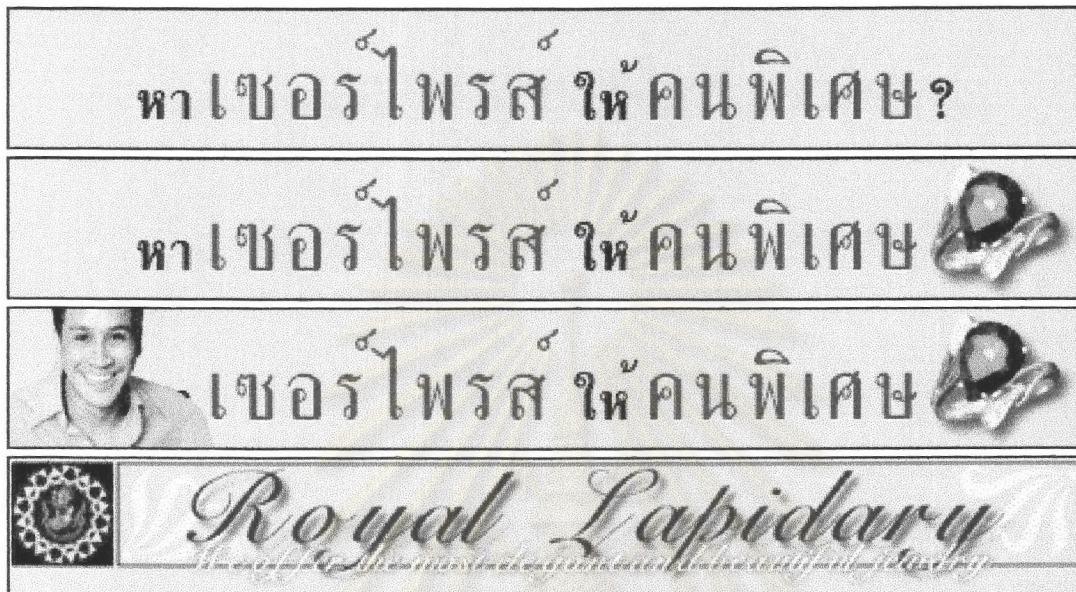 หา เซอร์ไพรส์ ให้ คนพิเศษ?
หา เซอร์ไพรส์ ให้ คนพิเศษ
เซอร์ไพรส์ ให้ คนพิเศษ
Royal Lapidary